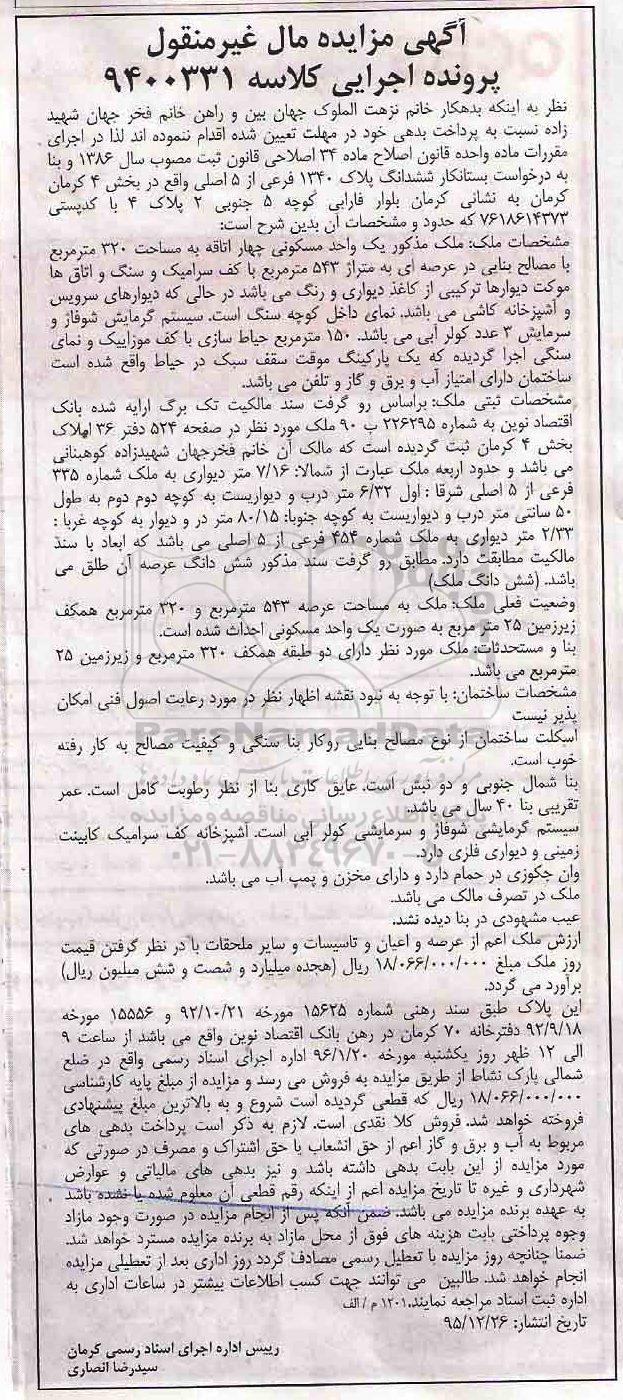 آگهی مزایده مال غیرمنقول
پرونده اجرایی کلاسه ۹۴۰۰۳۳۱
نظر به اینکه بدهکار خانم نزهت الملوک جهان بین و راهن خانم فخر جهان شهید
زاده نسبت به پرداخت بدهی خود در مهلت تعیین شده اقدام ننموده اند لذا در اجرای
مقررات ماده واحده قانون اصلاح ماده ۳۴ اصلاحی قانون ثبت مصوب سال ۱۳۸۶ و بنا
به درخواست بستانکار ششدانگ پلاک ۱۳۴۰ فرعی از ۵ اصلی واقع در بخش ۴ کرمان
کرمان به نشانی کرمان بلوار فارابی کوچه ۵ جنوبی ۲ پلاک ۴ با کدپستی
۷۶۱۸۶۱۴۳۷۳ که حدود و مشخصات آن بدین شرح است:
مشخصات ملک: ملک مذکور یک واحد مسکونی چهار اتاقه به مساحت ۳۲۰ مترمربع
با مصالح بنایی در عرصه ای به متراژ ۵۴۳ مترمربع با کف سرامیک و سنگ و اتاق ها
موکت دیوارها ترکیبی از کاغذ دیواری و رنگ می باشد در حالی که دیوارهای سرویس
و آشپزخانه کاشی می باشد. نمای داخل کوچه سنگ است. سیستم گرمایش شوفاژ و
سرمایش ۳ عدد کولر آبی می باشد. ۱۵۰ مترمربع حیاط سازی با کف موزاییک و نمای
سنگی اجرا گردیده که یک پارکینگ موقت سقف سبک در حیاط واقع شده است
ساختمان دارای امتیاز آب و برق و گاز و تلفن می باشد.
مشخصات ثبتی ملک: براساس رو گرفت سند مالکیت تک برگ ارایه شده بانک
اقتصاد نوین به شماره ۲۲۶۲۹۵ ب ۹۰ ملک مورد نظر در صفحه ۵۲۴ دفتر ۳۶ املاک
بخش ۴ کرمان ثبت گردیده است که مالک آن خانم فخرجهان شهیدزاده کوهبنانی
می باشد و حدود اربعه ملک عبارت از شمالا: ۷/۱۶ متر دیواری به ملک شماره ۳۳۵
فرعی از ۵ اصلی شرقا : اول ۶/۳۲ متر درب و دیواریست به کوچه دوم دوم به طول
۵۰ سانتی متر درب و دیواریست به کوچه جنوبا: ۸۰/۱۵ متر در و دیوار به کوچه غربا :
۲/۳۳ متر دیواری به ملک شماره ۴۵۴ فرعی از ۵ اصلی می باشد که ابعاد با سند
مالکیت مطابقت دارد. مطابق رو گرفت سند مذکور شش دانگ عرصه آن طلق می
باشد. (شش دانگ ملک)
وضعیت فعلی ملک: ملک به مساحت عرصه ۵۴۳ مترمربع و ۳۲۰ مترمربع همکف
زیرزمین ۲۵ متر مربع به صورت یک واحد مسکونی احداث شده است.
بنا و مستحدثات: ملک مورد نظر دارای دو طبقه همکف ۳۲۰ مترمربع و زیرزمین ۲۵
مترمربع می باشد.
مشخصات ساختمان: با توجه به نبود نقشه اظهار نظر در مورد رعایت اصول فنی امکان
پذیر نیست
اسکلت ساختمان از نوع مصالح بنایی روکار بنا سنگی و کیفیت مصالح به کار رفته
خوب است.
بنا شمال جنوبی و دو نبش است. عایق کاری بنا از نظر رطوبت کامل است. عمر
تقریبی بنا ۴۰ سال می باشد.
سیستم گرمایشی شوفاژ و سرمایشی کولر آبی است. آشپزخانه کف سرامیک کابینت
زمینی و دیواری فلزی دارد.
وان جکوزی در حمام دارد و دارای مخزن و پمپ آب می باشد.
ملک در تصرف مالک می باشد.
عیب مشهودی در بنا دیده نشد.
ارزش ملک اعم از عرصه و اعیان و تاسیسات و سایر ملحقات با در نظر گرفتن قیمت
روز ملک مبلغ ۱۸/۰۶۶/۰۰۰/۰۰۰ ریال (هجده میلیارد و شصت و شش میلیون ریال)
برآورد می گردد.
این پلاک طبق سند رهنی شماره ۱۵۶۲۵ مورخه ۹۲/۱۰/۲۱ و ۱۵۵۵۶ مورخه
۹۲/۹/۱۸ دفترخانه ۷۰ کرمان در رهن بانک اقتصاد نوین واقع می باشد از ساعت ۹
الی ۱۲ ظهر روز یکشنبه مورخه ۹۶/۱/۲۰ اداره اجرای اسناد رسمی واقع در ضلع
شمالی پارک نشاط از طریق مزایده به فروش می رسد و مزایده از مبلغ پایه کارشناسی
۱۸/۰۶۶/۰۰۰/۰۰۰ ریال که قطعی گردیده است شروع و به بالاترین مبلغ پیشنهادی
فروخته خواهد شد. فروش کلا نقدی است. لازم به ذکر است پرداخت بدهی های
مربوط به آب و برق و گاز اعم از حق انشعاب یا حق اشتراک و مصرف در صورتی که
مورد مزایده از این بابت بدهی داشته باشد و نیز بدهی های مالیاتی و عوارض
شهرداری و غیره تا تاریخ مزایده اعم از اینکه رقم قطعی آن معلوم شده یا نشده باشد
به عهده برنده مزایده می باشد. ضمن آنکه پس از انجام مزایده در صورت وجود مازاد
وجوه پرداختی بابت هزینه های فوق از محل مازاد به برنده مزایده مسترد خواهد شد.
ضمنا چنانچه روز مزایده با تعطیل رسمی مصادف گردد روز اداری بعد از تعطیلی مزایده
انجام خواهد شد. طالبین می توانند جهت کسب اطلاعات بیشتر در ساعات اداری به
اداره ثبت اسناد مراجعه نمایند. ۱۲۰۱ م / الف
تاریخ انتشار: ۹۵/۱۲/۲۶
رییس اداره اجرای اسناد رسمی کرمان
سیدرضا انصاری
ParsNamadData